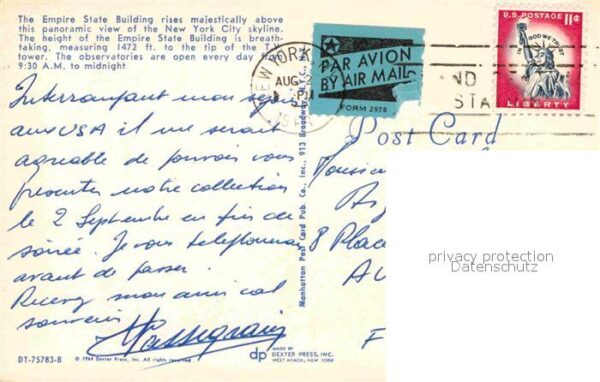 The Empire State Building rises majestically above
this panoramic view of the New York City skyline.
The height of the Empire State Building is breath-
taking, measuring 1472 ft. to the tip of the T.V.
tower. The observatories are open every day from
9:30 A.M. to midnight
NEW YORK
AUG 2
PM
PAR AVION
BY AIR MAIL
FORM 2978
U.S. POSTAGE 11¢
IN GOD WE TRUST
LIBERTY
Post Card
Interrompant mon séjour
aux USA il me serait
agréable de pouvoir vous
présenter notre collection
le 2 Septembre en fin de
soirée. Je vous téléphonerai
avant de passer
mon ami
8 Place
privacy protection
Datenschutz
Manhattan Post Card Pub. Co., Inc., 913 Broadway,
DT-75783-B
© 1964 Dexter Press, Inc. All rights reserved
dp
MADE BY
DEXTER PRESS, INC.
WEST NYACK, NEW YORK
F